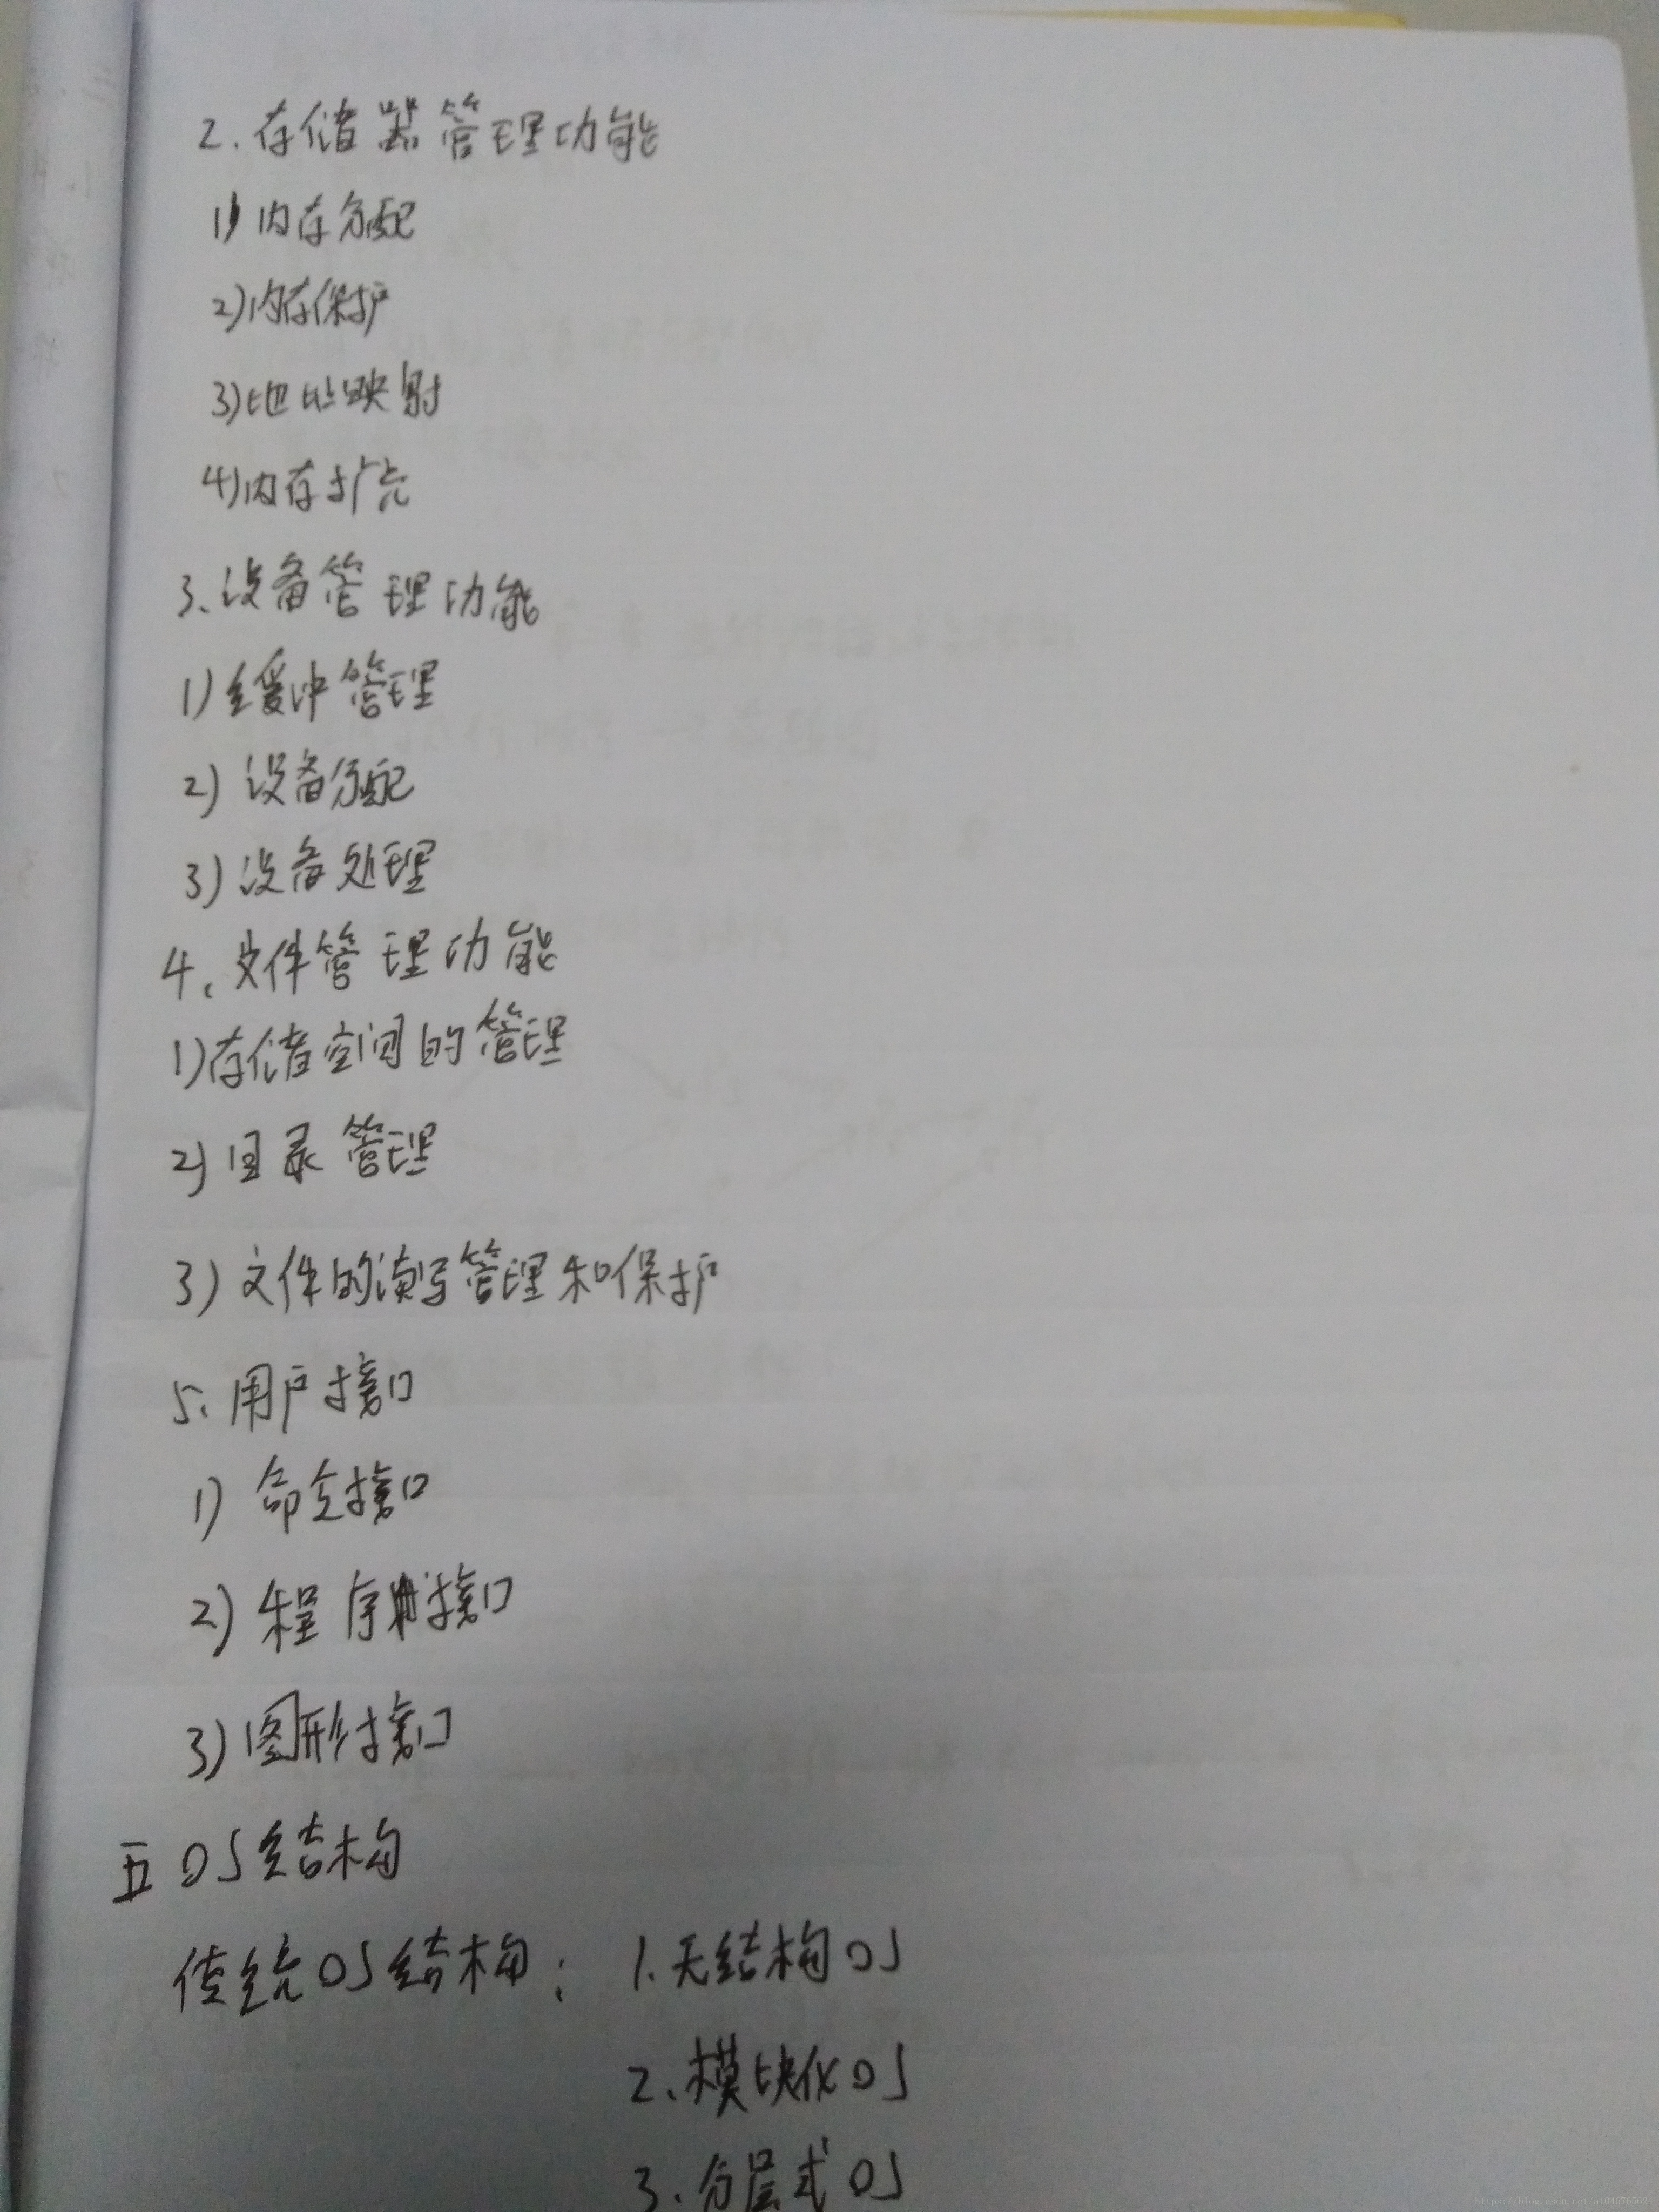 2.存储器管理功能
1)内存分配
2)内存保护
3)地址映射
4)内存扩充
3、设备管理功能
1)缓冲管理
2)设备分配
3)设备处理
4、文件管理功能
1)存储空间的管理
2)目录管理
3)文件的读写管理和保护
5、用户接口
1)命令接口
2)程序接口
3)图形接口
五 OS结构
传统OS结构: 1.无结构OS
2.模块化OS
3.分层式OS